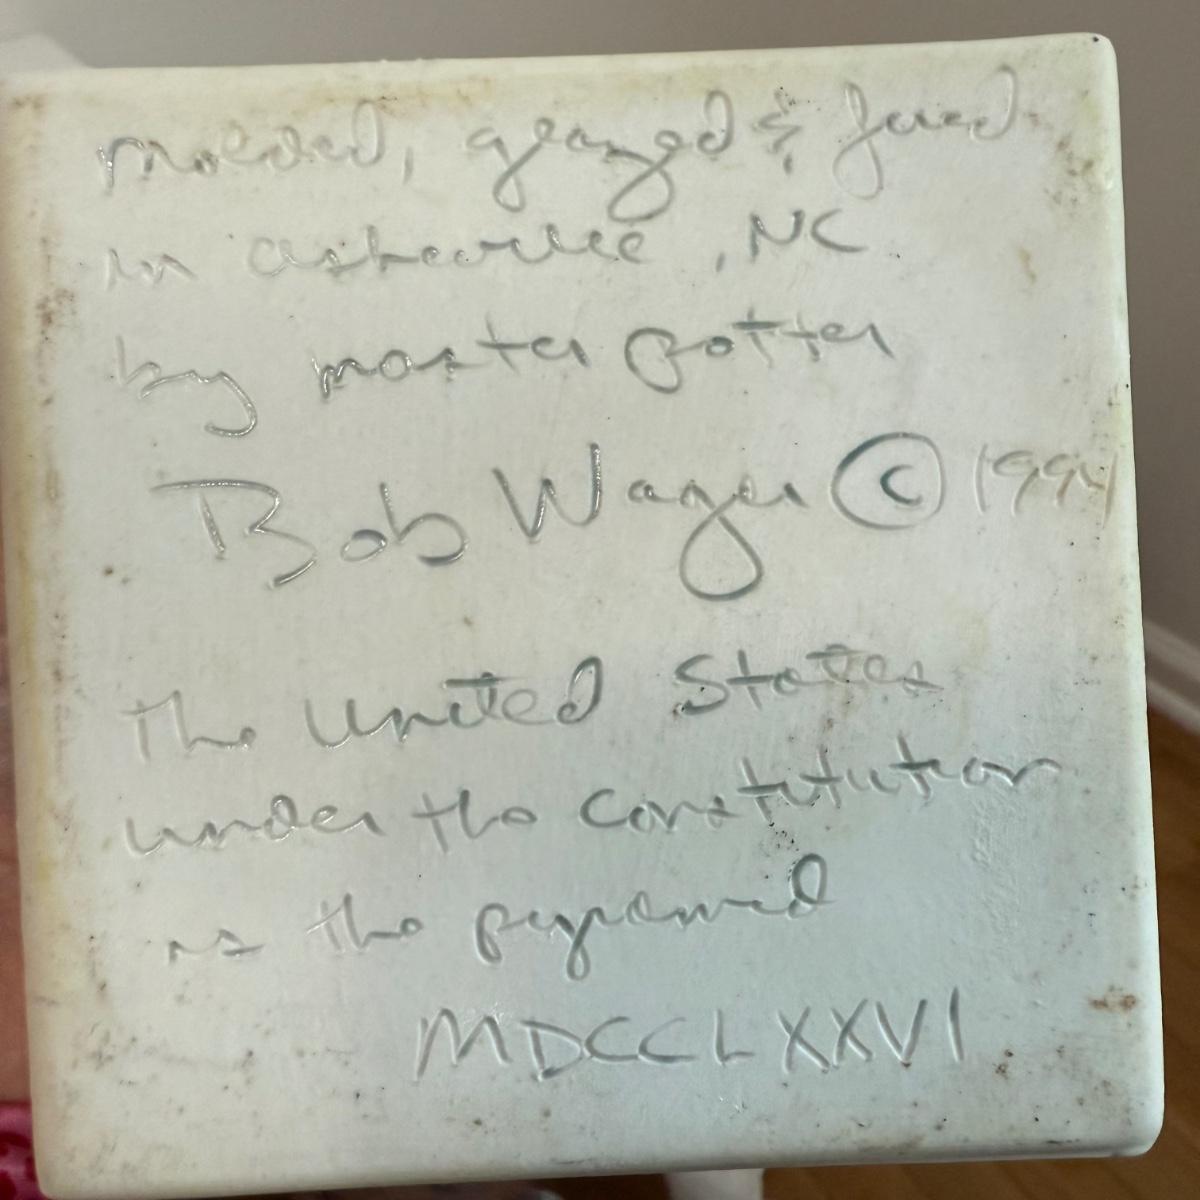 molded, glazed & fired
in asheville, NC
by master potter
Bob Wager © 1994
The United States
under the constitution
is the pyramid
MDCCLXXVI